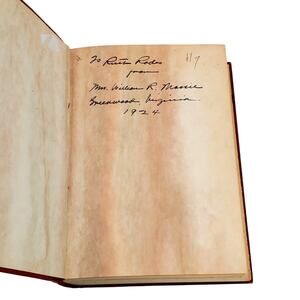 To Ruth Rodes
from
Mrs. William R. Massie
Greenwood Virginia
1924